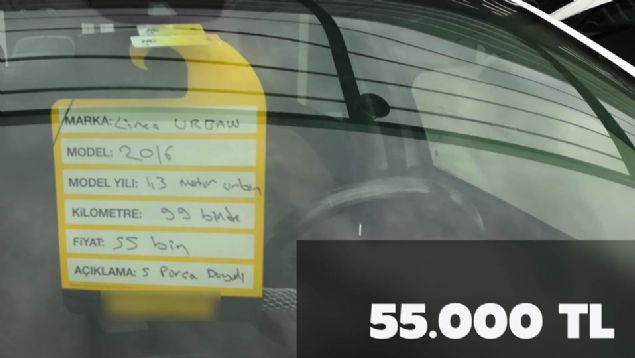 MARKA: Linea URBAN
MODEL: 2016
MODEL YILI: 1.3 motor urban
KİLOMETRE: 99 binde
FİYAT: 55 bin
AÇIKLAMA: 5 Parça Boyalı
55.000 TL